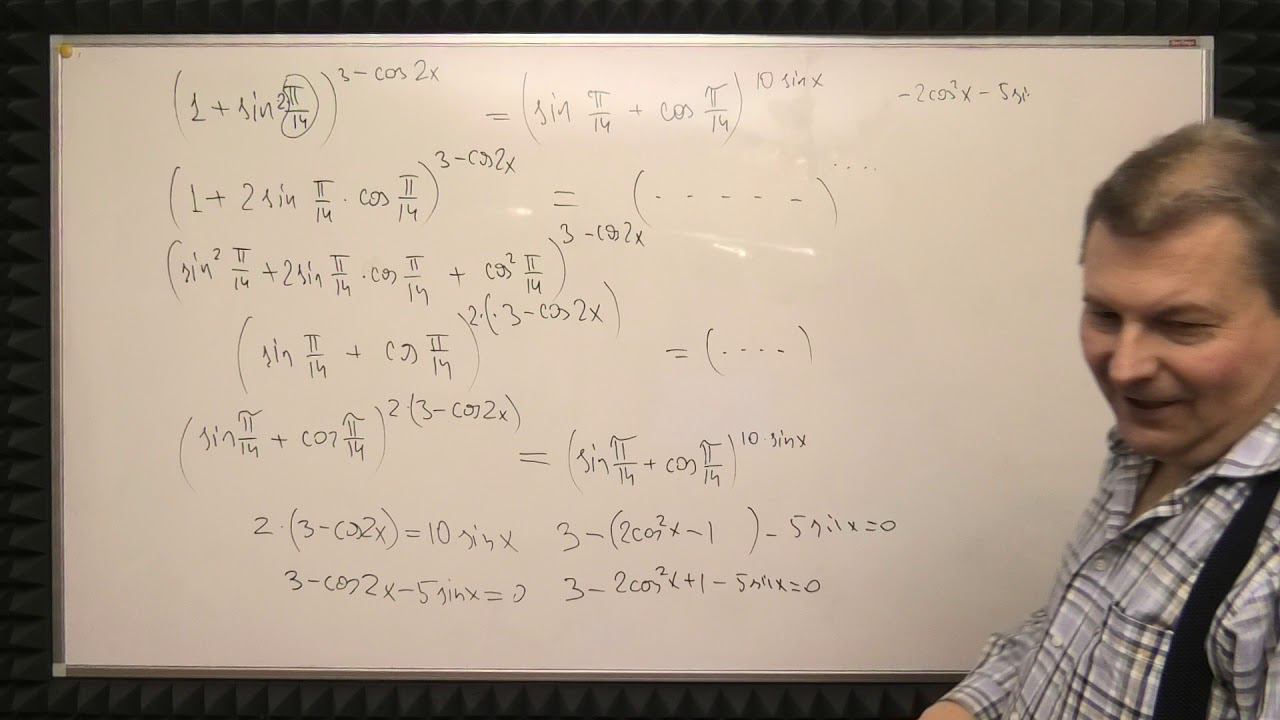 (1 + sin 2π/14)^(3 − cos 2x) = (sin π/14 + cos π/14)^(10 sin x)
−2cos²x − 5si
(1 + 2 sin π/14 · cos π/14)^(3 − cos 2x) = (- - - - -)^....
(sin² π/14 + 2 sin π/14 · cos π/14 + cos² π/14)^(3 − cos 2x)
(sin π/14 + cos π/14)^(2·(·3 − cos 2x)) = (....)
(sin π/14 + cos π/14)^(2·(3 − cos 2x)) = (sin π/14 + cos π/14)^(10·sin x)
2·(3 − cos 2x) = 10 sin x
3 − (2cos²x − 1) − 5 sin x = 0
3 − cos 2x − 5 sin x = 0
3 − 2cos²x + 1 − 5 sin x = 0